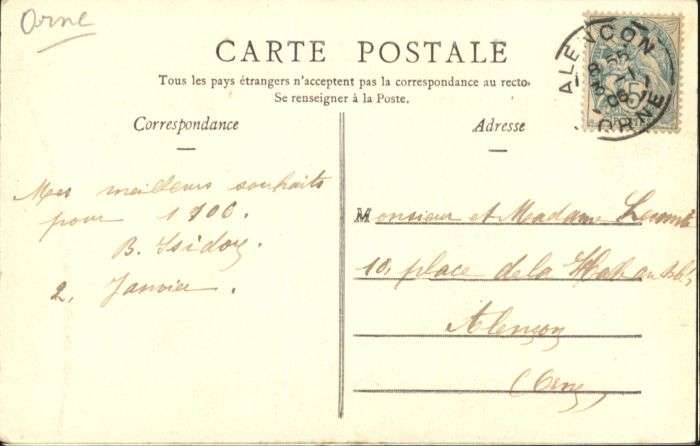 Orne
CARTE POSTALE
Tous les pays étrangers n'acceptent pas la correspondance au recto.
Se renseigner à la Poste.
Correspondance
Adresse
ALENÇON
ORNE
5
Mes meilleurs souhaits
pour 1906.
B. Isidore.
2, Janvier.
Monsieur et Madame Lecomte
10, place de la Halle au blé,
Alençon
(Orne)